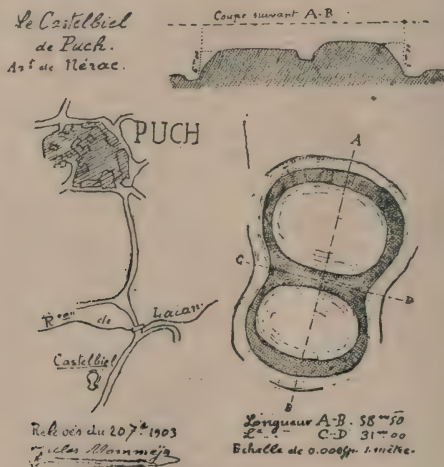 Le Castelbiel
de Puch.
Arᵗ de Nérac.
Coupe suivant A-B
PUCH
A
C
D
B
de Lacan
Castelbiel
Relevés du 20 7ᵇʳᵉ 1903
Jules Momméja
Longueur A-B. 58ᵐ50
C-D 31ᵐ00
Echelle de 0.000 1. mètre.